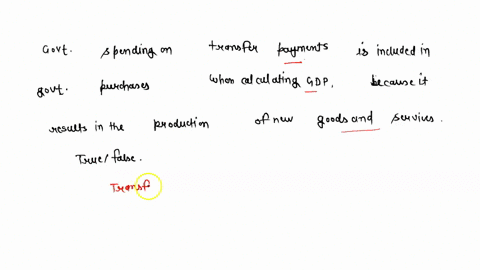 Govt. spending on transfer payments is included in
govt. purchases when calculating GDP, because it
results in the production of new goods and services.
True/false.
Transf